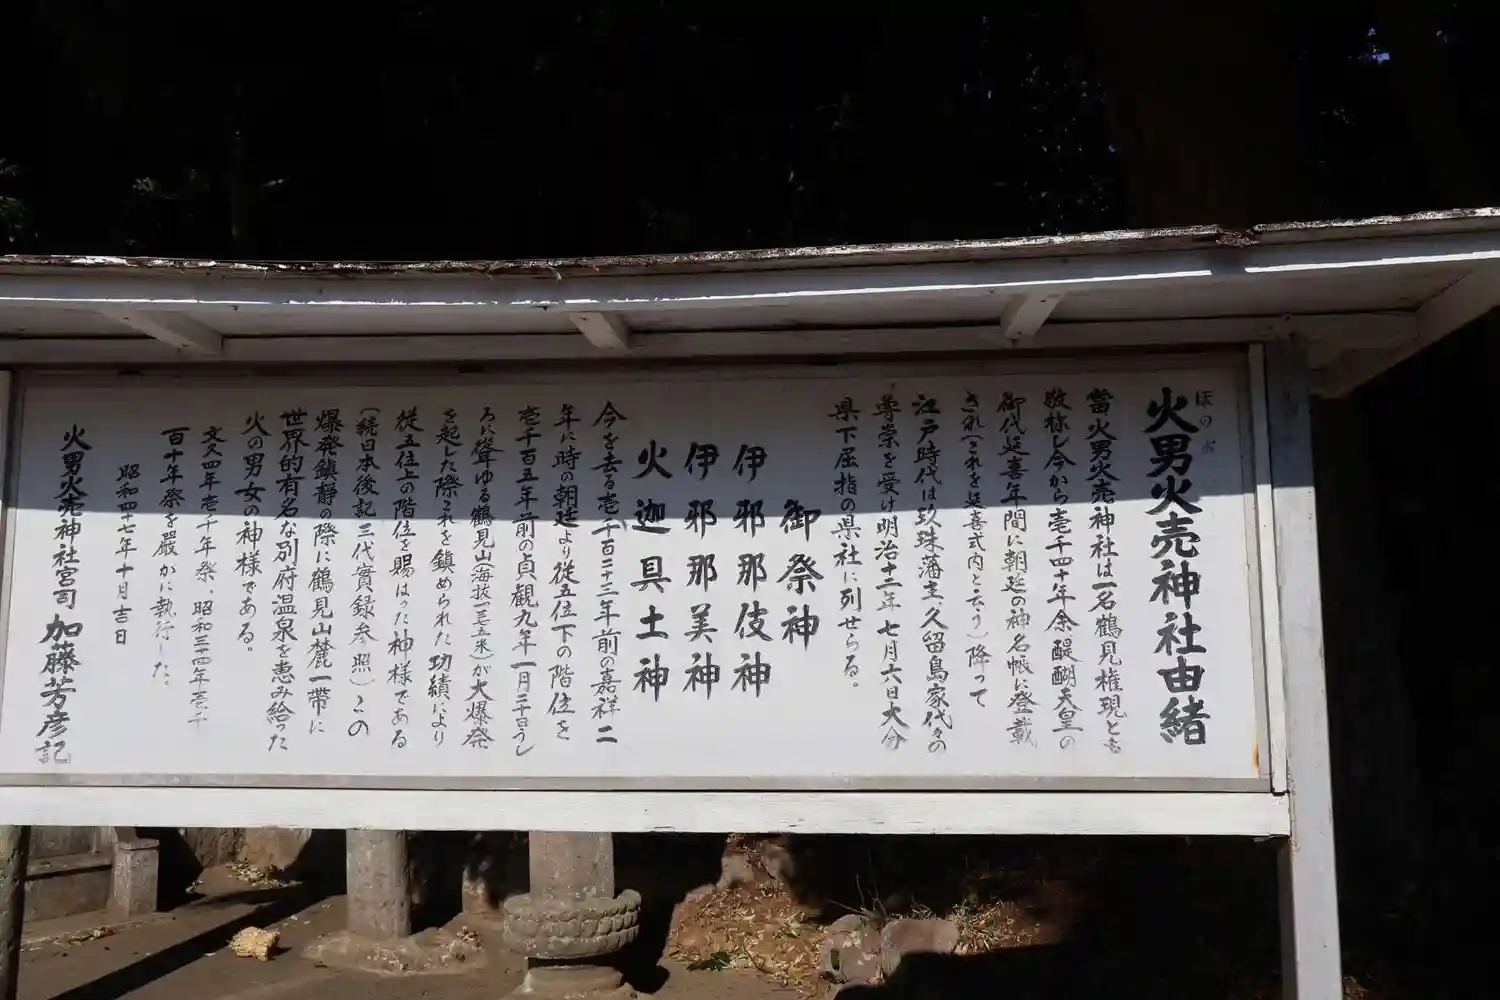 火男火売神社由緒
ほのを
當火男火売神社は一名鶴見権現とも
敬称し今から壱千四十年余醍醐天皇の
御代延喜年間に朝廷の神名帳に登載
され(これを延喜式内と云う)降って
江戸時代は玖珠藩主、久留島家代々の
尊崇を受け明治十二年七月六日大分
県下屈指の県社に列せらる。
御祭神
伊邪那伎神
伊邪那美神
火迦具土神
今を去る壱千百二十三年前の嘉祥二
年に時の朝廷より従五位下の階位を
壱千百五年前の貞観九年一月二十日うし
ろに聳ゆる鶴見山(海抜一三七五米)が大爆発
を起した際これを鎮められた功績により
従五位上の階位を賜はった神様である
(続日本後記三代實録参照)この
爆発鎮静の際に鶴見山麓一帯に
世界的有名な別府温泉を恵み給った
火の男女の神様である。
文久四年壱千年祭、昭和三十四年壱千
百十年祭を厳かに執行した。
昭和四七年十月吉日
火男火売神社宮司 加藤芳彦記